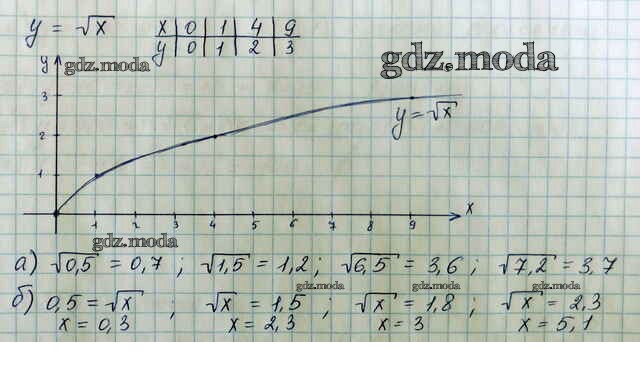 y = √x
x | 0 | 1 | 4 | 9
y | 0 | 1 | 2 | 3
gdz.moda
gdz.moda
y
3
2
1
y = √x
x
1 2 3 4 5 6 7 8 9
gdz.moda
а) √0,5 = 0,7 ; √1,5 = 1,2 ; √6,5 = 3,6 ; √7,2 = 3,7
gdz.moda gdz.moda gdz.moda
б) 0,5 = √x ; √x = 1,5 ; √x = 1,8 ; √x = 2,3
x = 0,3 x = 2,3 x = 3 x = 5,1